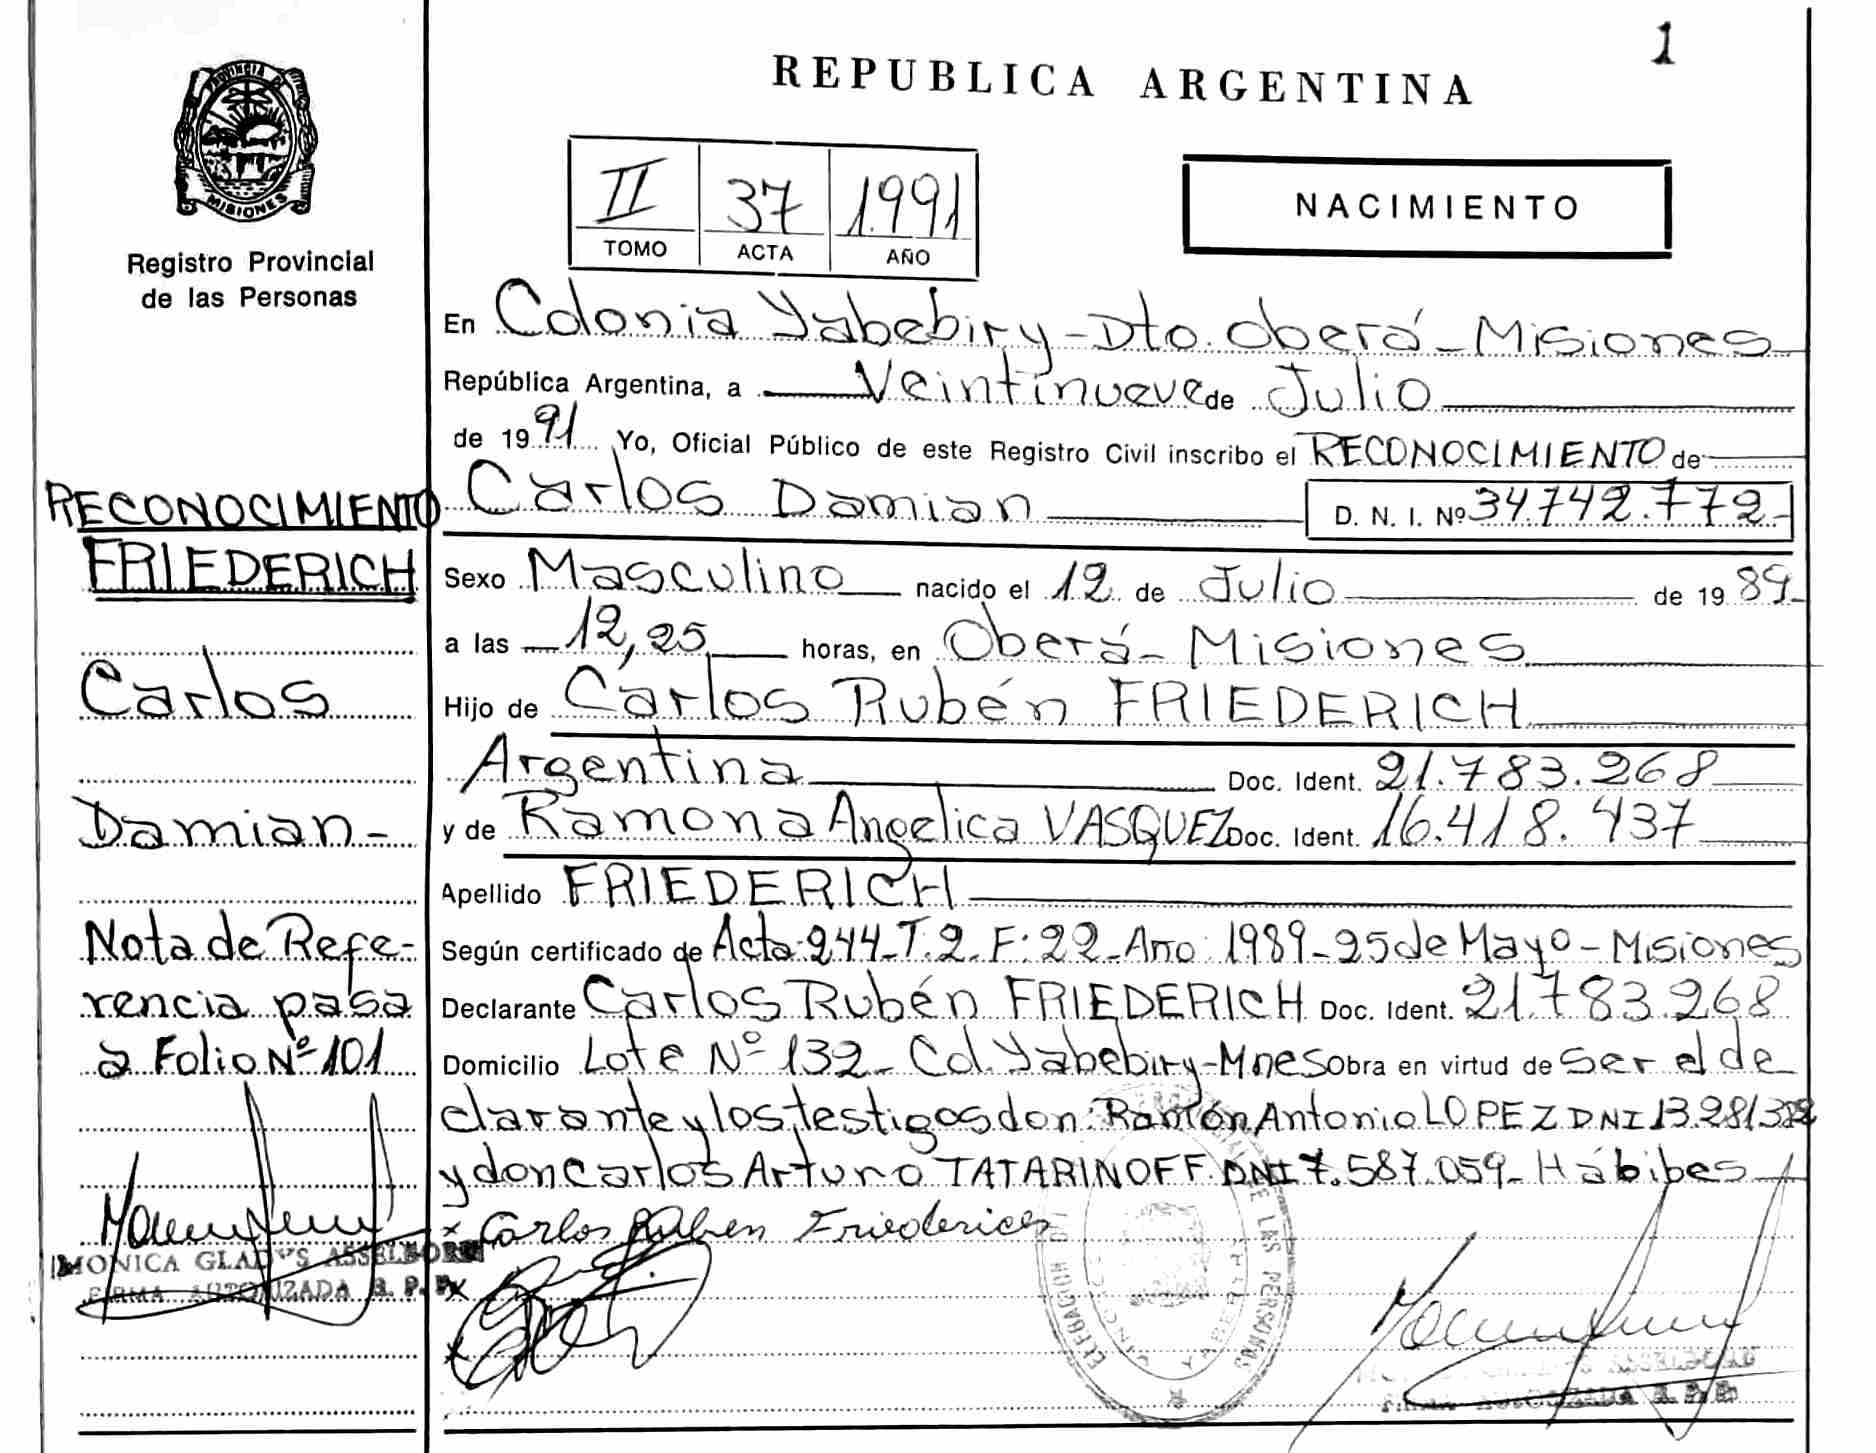 1
REPUBLICA ARGENTINA
PROVINCIA DE
MISIONES
Registro Provincial
de las Personas
II 37 1.991
TOMO ACTA AÑO
NACIMIENTO
En Colonia Yabebiry - Dto. Oberá - Misiones
República Argentina, a Veintinueve de Julio
de 1991 Yo, Oficial Público de este Registro Civil inscribo el RECONOCIMIENTO de
Carlos Damian D. N. I. Nº 34.742.772-
Sexo Masculino nacido el 12 de Julio de 1989-
a las 12,25 horas, en Oberá - Misiones
Hijo de Carlos Rubén FRIEDERICH
Argentina Doc. Ident. 21.783.268
y de Ramona Angelica VASQUEZ Doc. Ident. 16.418.437
Apellido FRIEDERICH
Según certificado de Acta: 244-T.2-F:22-Año: 1989-25 de Mayo - Misiones
Declarante Carlos Rubén FRIEDERICH Doc. Ident. 21.783.268
Domicilio Lote Nº 132- Col. Yabebiry-Mnes Obra en virtud de Ser el de
clarante y los testigos don: Ramón Antonio LOPEZ DNI
y don Carlos Arturo TATARINOFF. DNI 7.587.059- Hábibes
x Carlos Ruben Friederich
x
x
RECONOCIMIENTO
FRIEDERICH
Carlos
Damian-
Nota de Refe-
rencia pasa
a Folio Nº 101
MONICA GLADYS ASSELBORN
FIRMA AUTORIZADA R. P. P.
DE LAS PERSONAS
FIRMA AUTORIZADA R. P. P.